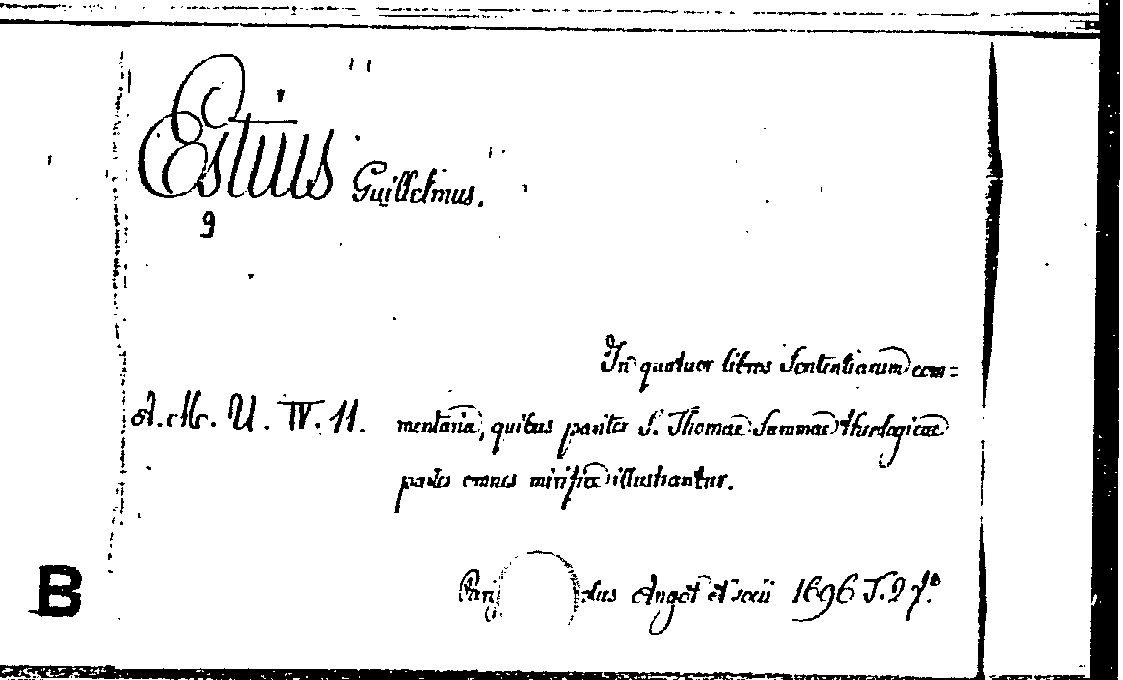 Estius Guillelmus.
9
In quatuor libros Sententiarum com=
A. Mr. U. IV. 11. mentaria, quibus pariter S. Thomae Summae theologicae
partes omnes mirifice illustrantur.
B
Angot et socii 1696 T. 2 fo.